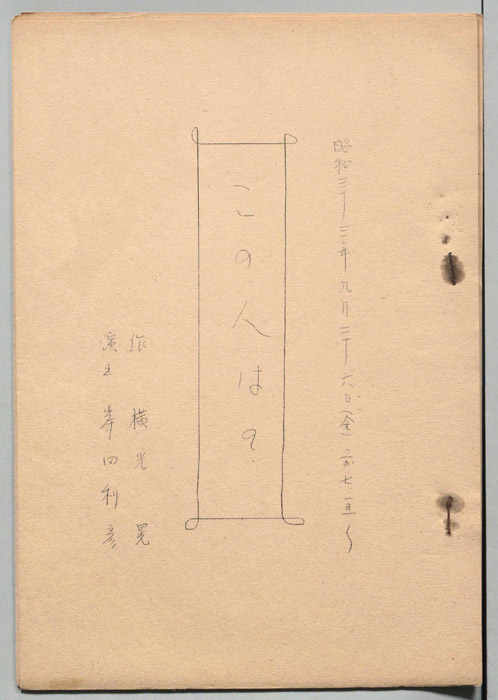 昭和三十三年九月二十六日(金)
この人は?
作 横光 晃
演出 岸田利彦